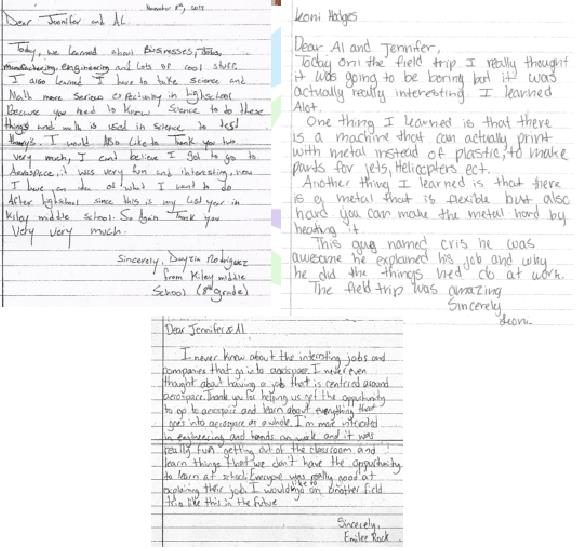 November 8th, 2017
Dear Jennifer and Al.
Today, we learned about Businesses, Jobs,
manufacturing, engineering and lots of cool stuff.
I also learned I have to take science and
Math more serious especially in highschool
Because you need to know science to do these
things and math is used in science to test
things. I would Also like to Thank you two
very much, I can't believe I got to go to
Aerospace, it was very fun and interesting, now
I have an idea of what I want to do
After highschool since this is my last year in
Kiley middle school. So Again Thank you
Very very much.
Sincerely, Rodriguez
from Kiley middle
School (8th grade)
Leoni Hodges
Dear Al and Jennifer,
Today on the field trip I really thought
it was going to be boring but it was
actually really interesting. I learned
Alot.
One thing I learned is that there
is a machine that can actually print
with metal instead of plastic, to make
parts for jets, Helicopters ect.
Another thing I learned is that there
is a metal that is flexible but also
hard you can make the metal hard by
heating it.
This guy named cris he was
awesome he explained his job and why
he did the things he'd do at work.
The field trip was amazing
Sincerely
Leoni
Dear Jennifer & Al
I never knew about the interesting jobs and
companies that go into aerospace. I never even
thought about having a job that is centered around
aerospace. Thank you for helping us get the opportunity
to go to aerospace and learn about everything that
goes into aerospace as a whole. I'm more intrested
in engineering and hands on work and it was
really fun getting out of the classroom and
learn things that we don't have the oppurtunity
to learn at school. Everyone was really good at
explaining their job. I would like to go on another field
trip like this in the future
Sincerely,
Emilee Rock